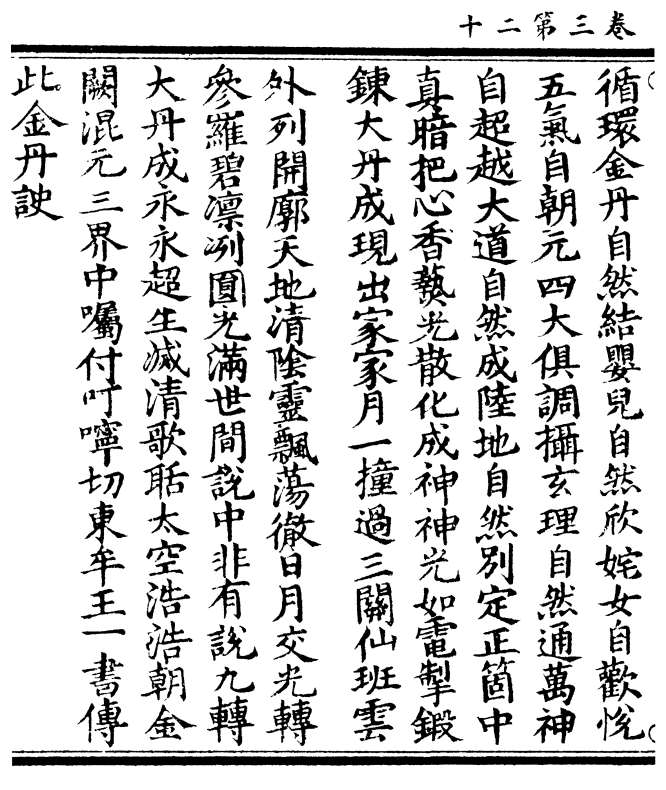 卷三第二十
循環金丹自然結嬰兒自然欣姹女自歡悅
五氣自朝元四大俱調攝玄理自然通萬神
自超越大道自然成陸地自然別定正箇中
真暗把心香爇光散化成神神光如電掣鍛
鍊大丹成現出家家月一撞過三關仙班雲
外列開廓天地清陰靈飄蕩徹日月交光轉
參羅碧凛冽圓光滿世間說中非有說九轉
大丹成永永超生滅清歌聒太空浩浩朝金
闕混元三界中囑付叮嚀切東牟王一書傳
此金丹訣